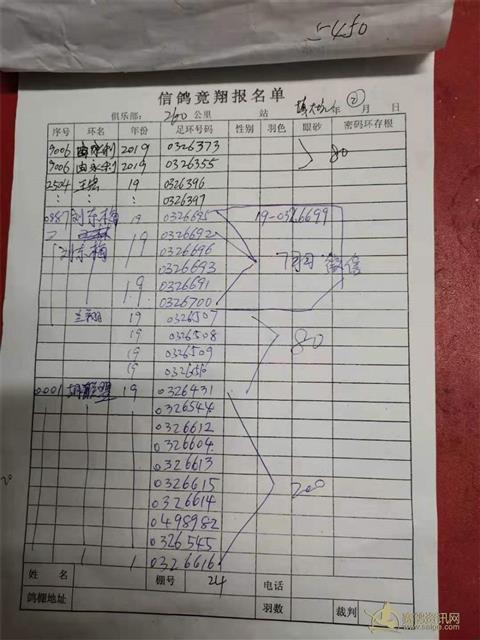 5450
信鸽竞翔报名单
俱乐部: 260 公里 站 年 ② 月 日
序号 环名 年份 足环号码 性别 羽色 眼砂 密码环存根
9006 2019 0326373
9006 2019 0326355 80
2504 王宏 19 0326396
: : : 0326397
0887 刘东梅 19 0326695 19-0326699
刘东梅 19 0326692
0326696 7羽 微信
0326693
19 0326691
0326700
兰翔 19 0326507
19 0326508 80
19 0326509
19
0001 胡联盟 19 0326431
0326544
0326612
0326604
0326613
0326615 200
0326614
0498982
0326545
0326616
姓名 棚号 24 电话
鸽棚地址 羽数 裁判
赛鸽资讯网
www.saige.com